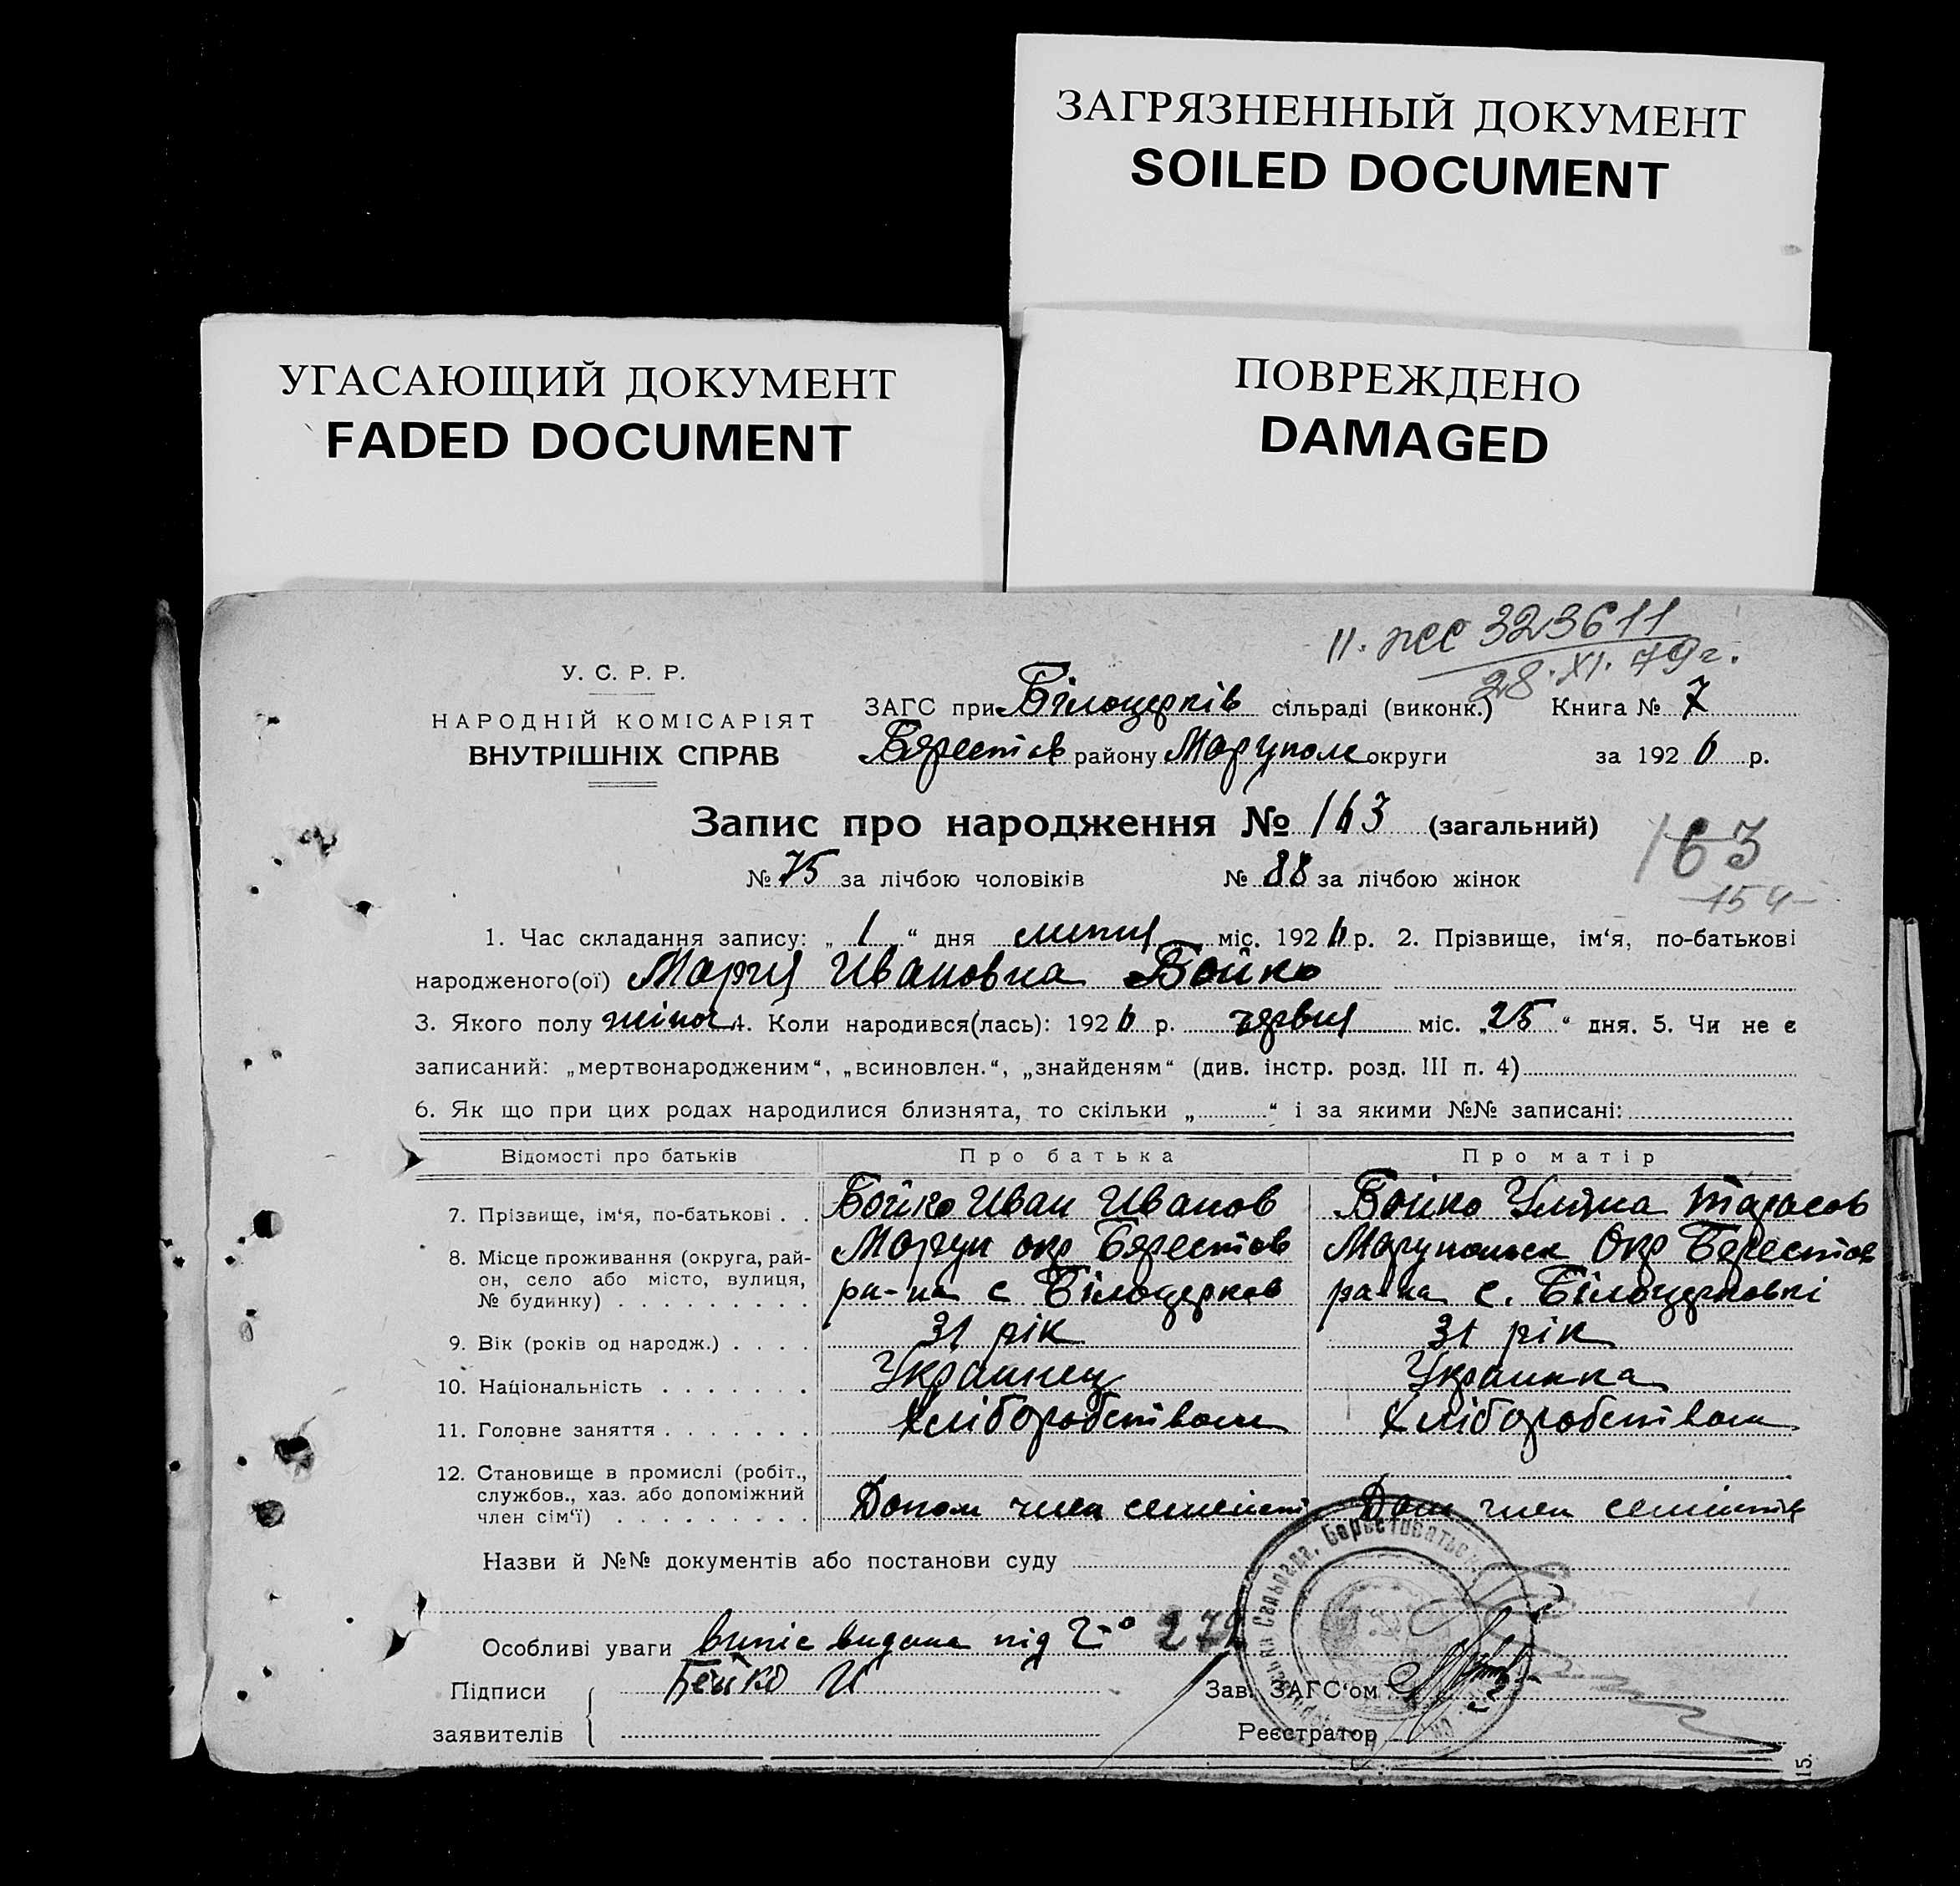 ЗАГРЯЗНЕННЫЙ ДОКУМЕНТ
SOILED DOCUMENT
УГАСАЮЩИЙ ДОКУМЕНТ
FADED DOCUMENT
ПОВРЕЖДЕНО
DAMAGED
323611
28.XI.79г.
У. С. Р. Р.
НАРОДНІЙ КОМІСАРІЯТ
ВНУТРІШНІХ СПРАВ
ЗАГС при Білоцерків сільраді (виконк.) Книга № 7
Берестов району Маруполь округи за 1926 р.
Запис про народження № 163 (загальний)
163
154
№ 75 за лічбою чоловіків № 88 за лічбою жінок
1. Час складання запису: „1“ дня липня міс. 1926 р. 2. Прізвище, ім‘я, по-батькові
народженого(ої) Мария Ивановна Бойко
3. Якого полу жіноч 4. Коли народився(лась): 1926 р. червня міс. „25“ дня. 5. Чи не є
записаний: „мертвонародженим“, „всиновлен.“, „знайденям“ (див. інстр. розд. III п. 4)
6. Як що при цих родах народилися близнята, то скільки „ “ і за якими №№ записані:
Відомості про батьків Про батька Про матір
7. Прізвище, ім‘я, по-батькові . . Бойко Иван Иванов Бойко Уляна Тарасов
8. Місце проживання (округа, рай- Маріуп окр Берестов Марупольск Окр Берестов
он, село або місто, вулиця, ра-на с Білоцерков ра-на с. Білоцерковкі
№ будинку)
9. Вік (років од народж.) . . . . 31 рік 31 рік
10. Національність . . . . . . . Украинец Украинка
11. Головне заняття . . . . . . . Хліборобством Хліборобством
12. Становище в промислі (робіт.,
службов., хаз. або допоміжний Допом член Дом член
член сім‘ї)
Назви й №№ документів або постанови суду
Особливі уваги випіс видана під
Підписи Бойко И Зав. ЗАГС‘ом
заявителів Реєстратор
15